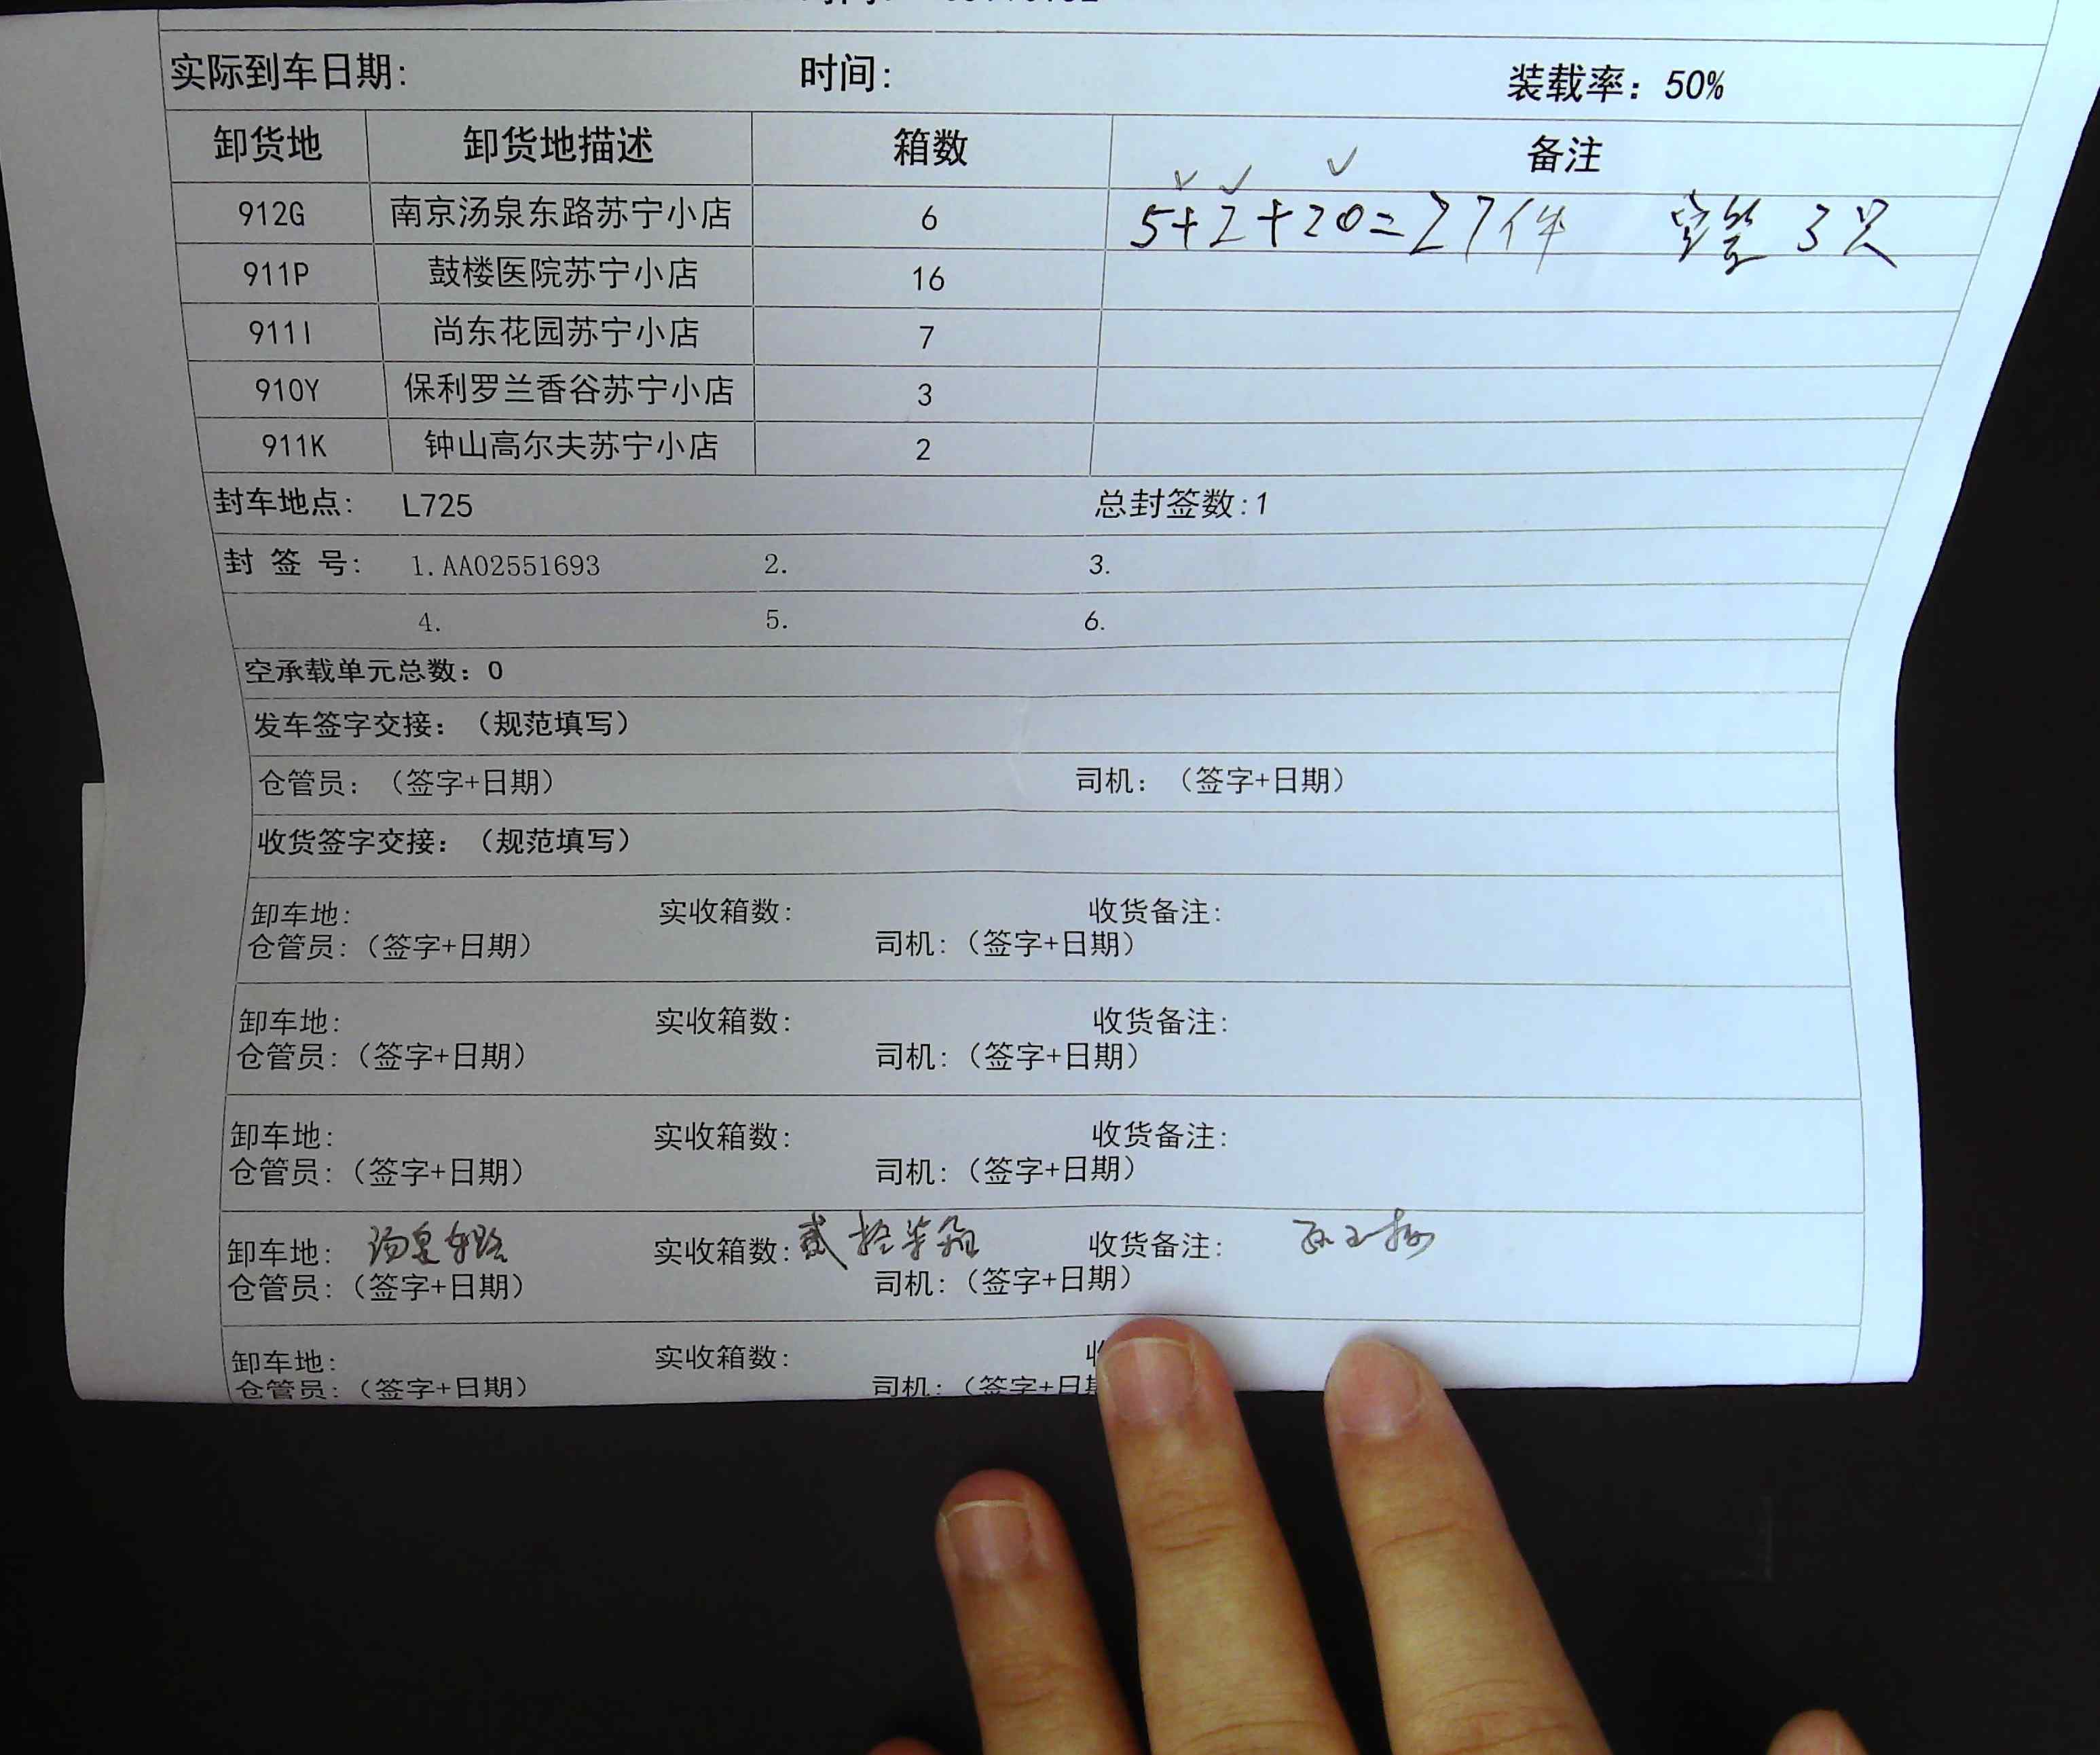 实际到车日期: 时间: 装载率: 50%
卸货地 卸货地描述 箱数 备注
912G 南京汤泉东路苏宁小店 6 5+2+20=27件 空筐 3只
911P 鼓楼医院苏宁小店 16
911I 尚东花园苏宁小店 7
910Y 保利罗兰香谷苏宁小店 3
911K 钟山高尔夫苏宁小店 2
封车地点: L725 总封签数:1
封 签 号: 1.AA02551693 2. 3.
4. 5. 6.
空承载单元总数: 0
发车签字交接: (规范填写)
仓管员: (签字+日期) 司机: (签字+日期)
收货签字交接: (规范填写)
卸车地: 实收箱数: 收货备注:
仓管员:(签字+日期) 司机:(签字+日期)
卸车地: 实收箱数: 收货备注:
仓管员:(签字+日期) 司机:(签字+日期)
卸车地: 实收箱数: 收货备注:
仓管员:(签字+日期) 司机:(签字+日期)
卸车地: 汤泉东路 实收箱数: 贰拾柒箱 收货备注:
仓管员:(签字+日期) 司机:(签字+日期)
卸车地: 实收箱数:
仓管员:(签字+日期) 司机:(签字+日